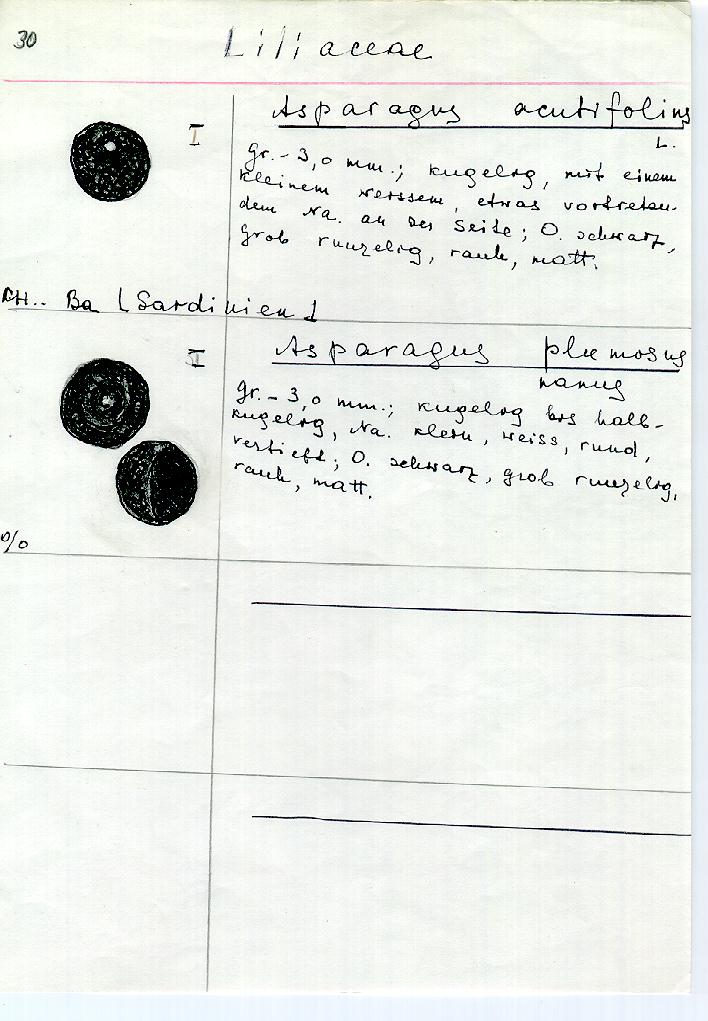 30
Liliaceae
Asparagus acutifolius
L.
I
Gr. - 3,0 mm.; kugelig, mit einem
kleinem weissem, etwas vortreten-
dem Na. an der Seite; O. schwarz,
grob runzelig, rauh, matt.
CH.. Ba (Sardinien)
Asparagus plumosus
nanus
I
Gr. - 3,0 mm.; kugelig bis halb-
kugelig, Na. klein, weiss, rund,
vertieft; O. schwarz, grob runzelig,
rauh, matt.
0/0